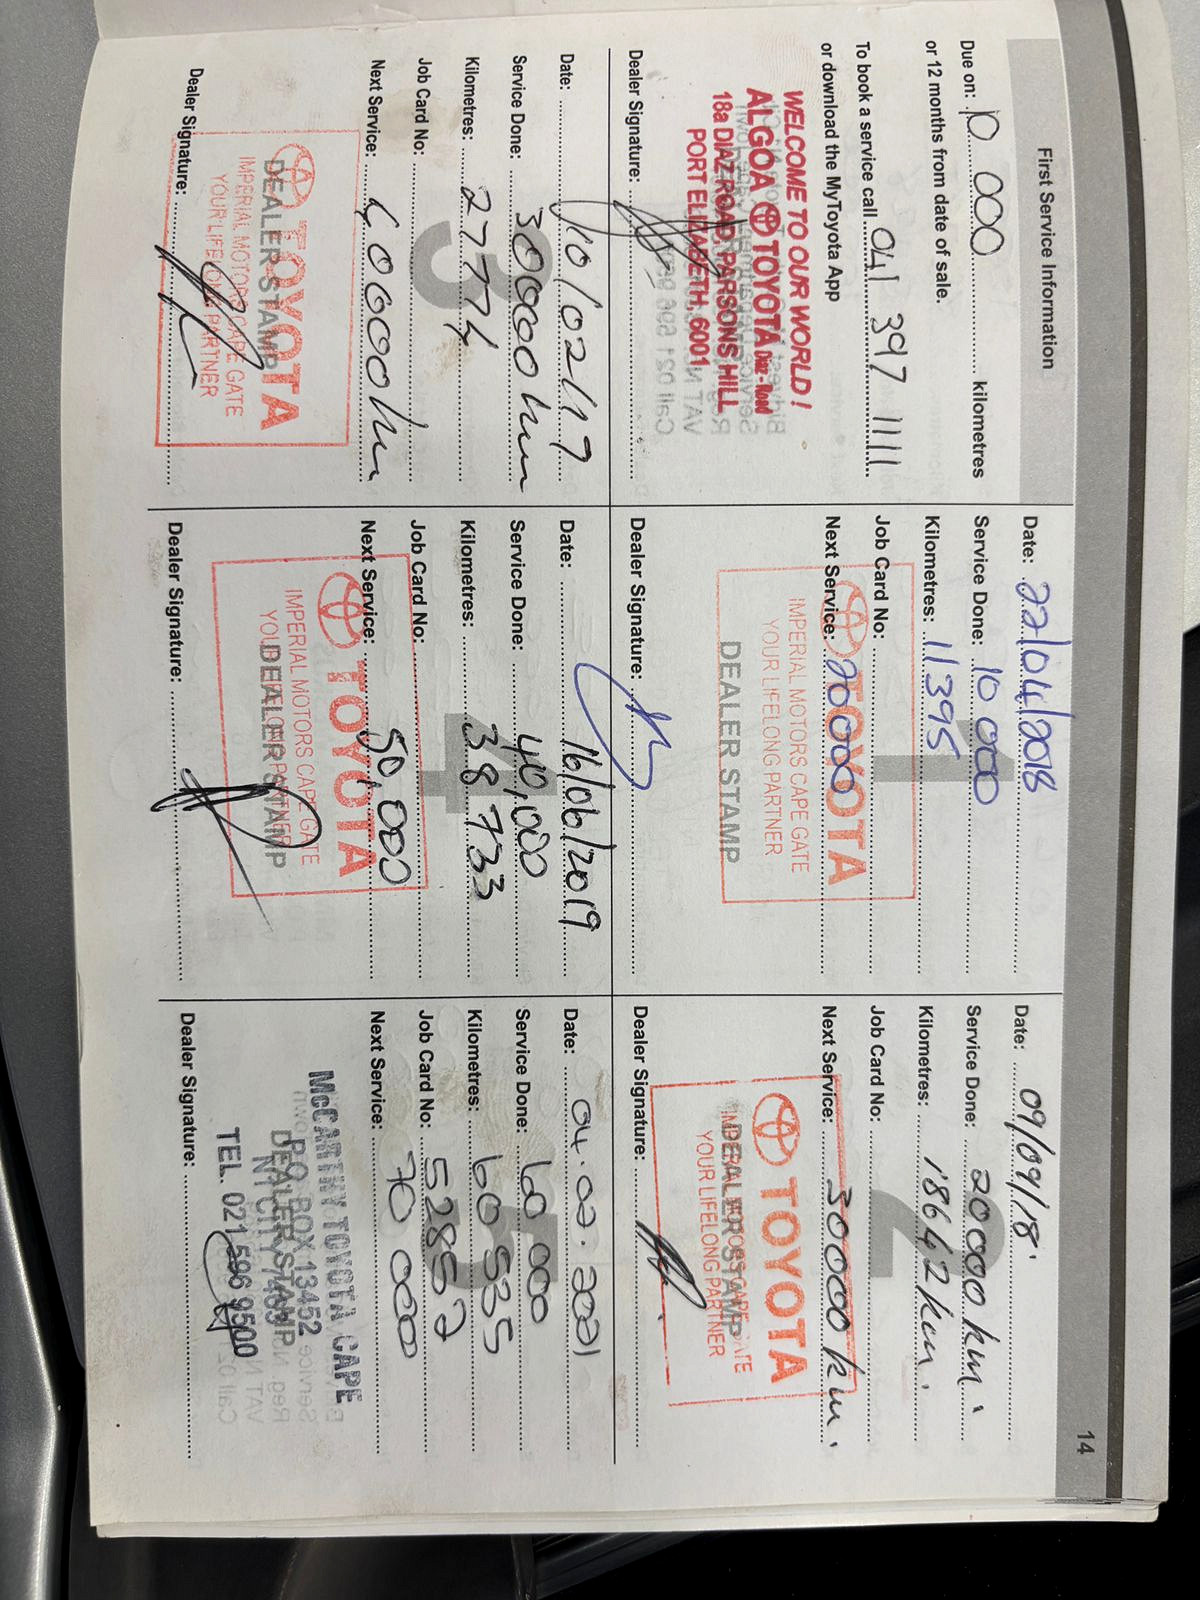 14
First Service Information
Due on: 10 000 kilometres
or 12 months from date of sale.
To book a service call 041 397 1111
or download the MyToyota App
WELCOME TO OUR WORLD!
ALGOA TOYOTA Diaz - Road
18a DIAZ ROAD, PARSONS HILL
PORT ELIZABETH, 6001
Dealer Signature:
1
Date: 22/04/2018
Service Done: 10 000
Kilometres: 11395
Job Card No:
Next Service: 20000
TOYOTA
IMPERIAL MOTORS CAPE GATE
YOUR LIFELONG PARTNER
DEALER STAMP
Dealer Signature:
2
Date: 09/09/18.
Service Done: 20000 km.
Kilometres: 18642 km.
Job Card No:
Next Service: 30000 km.
TOYOTA
IMPERIAL MOTORS CAPE GATE
DEALER STAMP
YOUR LIFELONG PARTNER
Dealer Signature:
3
Date: 10/02/19
Service Done: 30000 km
Kilometres: 27774
Job Card No:
Next Service: 40000 km
TOYOTA
DEALER STAMP
IMPERIAL MOTORS CAPE GATE
YOUR LIFELONG PARTNER
Dealer Signature:
4
Date: 16/06/2019
Service Done: 40,000
Kilometres: 38733
Job Card No:
Next Service: 50,000
TOYOTA
IMPERIAL MOTORS CAPE GATE
YOUR LIFELONG PARTNER
DEALER STAMP
Dealer Signature:
5
Date: 04.02.2021
Service Done: 60 000
Kilometres: 60 535
Job Card No: 52852
Next Service: 70 000
McCARTHY TOYOTA CAPE
P.O. BOX 13452
DEALER STAMP
TEL. 021 596 9500
Dealer Signature: